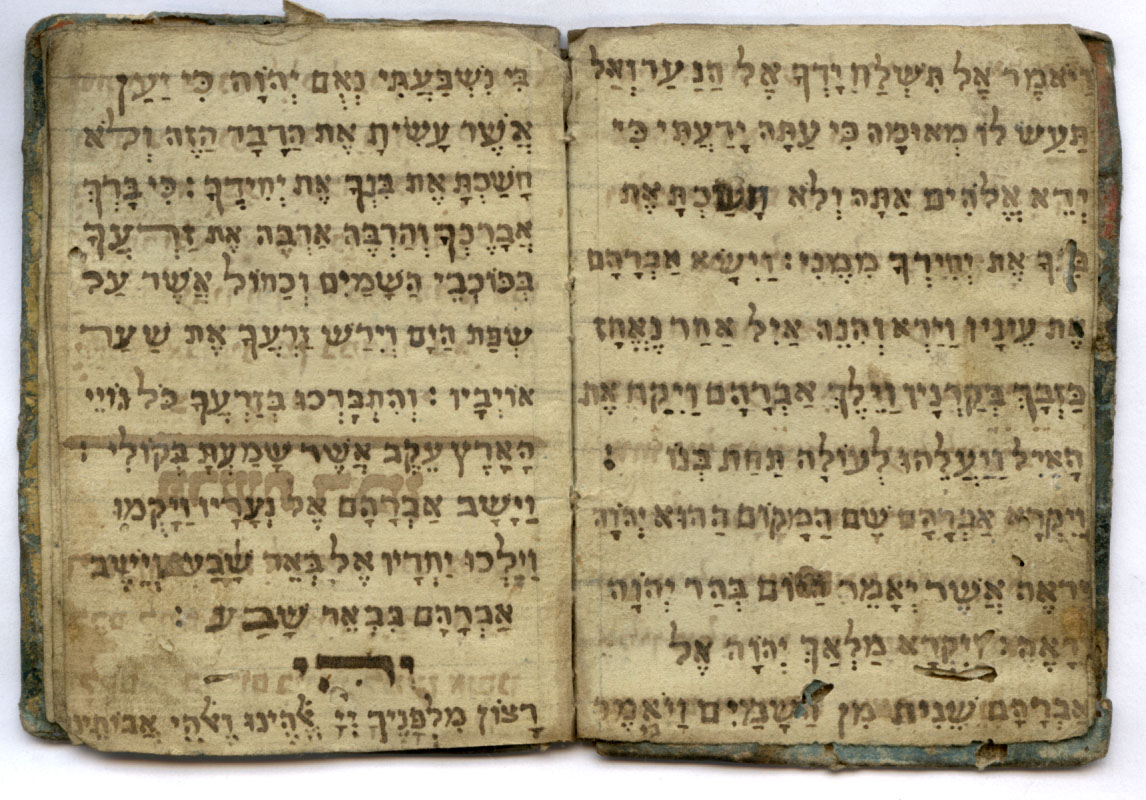 וַיֹּאמֶר אַל תִּשְׁלַח יָדְךָ אֶל הַנַּעַר וְאַל
תַּעַשׂ לוֹ מְאוּמָה כִּי עַתָּה יָדַעְתִּי כִּי
יְרֵא אֱלֹהִים אַתָּה וְלֹא חָשַׂכְתָּ אֶת
בִּנְךָ אֶת יְחִידְךָ מִמֶּנִּי : וַיִּשָּׂא אַבְרָהָם
אֶת עֵינָיו וַיַּרְא וְהִנֵּה אַיִל אַחַר נֶאֱחָז
בַּסְּבָךְ בְּקַרְנָיו וַיֵּלֶךְ אַבְרָהָם וַיִּקַּח אֶת
הָאַיִל וַיַּעֲלֵהוּ לְעוֹלָה תַּחַת בְּנוֹ :
וַיִּקְרָא אַבְרָהָם שֵׁם הַמָּקוֹם הַהוּא יְהֹוָה
יִרְאֶה אֲשֶׁר יֵאָמֵר הַיּוֹם בְּהַר יְהֹוָה
יֵרָאֶה : וַיִּקְרָא מַלְאַךְ יְהֹוָה אֶל
אַבְרָהָם שֵׁנִית מִן הַשָּׁמַיִם וַיֹּאמֶר
בִּי נִשְׁבַּעְתִּי נְאֻם יְהֹוָה כִּי יַעַן
אֲשֶׁר עָשִׂיתָ אֶת הַדָּבָר הַזֶּה וְלֹא
חָשַׂכְתָּ אֶת בִּנְךָ אֶת יְחִידֶךָ : כִּי בָרֵךְ
אֲבָרֶכְךָ וְהַרְבָּה אַרְבֶּה אֶת זַרְעֲךָ
כְּכוֹכְבֵי הַשָּׁמַיִם וְכַחוֹל אֲשֶׁר עַל
שְׂפַת הַיָּם וְיִרַשׁ זַרְעֲךָ אֶת שַׁעַר
אוֹיְבָיו : וְהִתְבָּרְכוּ בְזַרְעֲךָ כֹּל גּוֹיֵי
הָאָרֶץ עֵקֶב אֲשֶׁר שָׁמַעְתָּ בְּקוֹלִי :
וַיָּשָׁב אַבְרָהָם אֶל נְעָרָיו וַיָּקֻמוּ
וַיֵּלְכוּ יַחְדָּיו אֶל בְּאֵר שָׁבַע וַיֵּשֶׁב
אַבְרָהָם בִּבְאֵר שָׁבַע :
יהי
רָצוֹן מִלְּפָנֶיךָ יְיָ אֱלֹהֵינוּ וֵאלֹהֵי אֲבוֹתֵינוּ